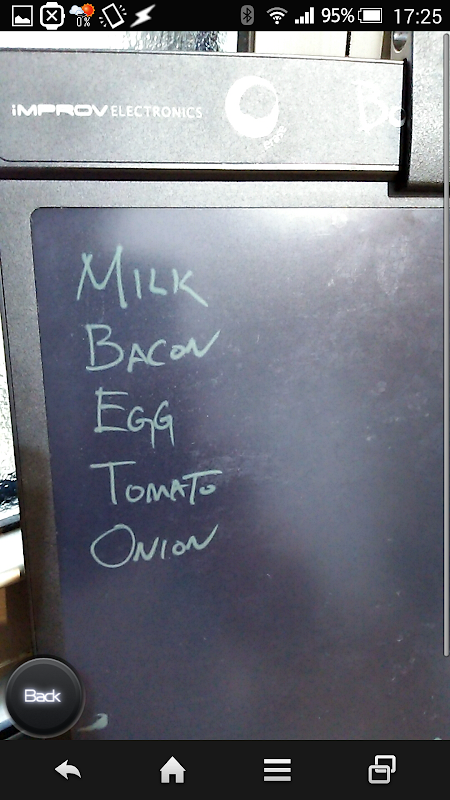 0%
95%
17:25
iMPROV ELECTRONICS
MILK
BACON
EGG
TOMATO
ONION
Back